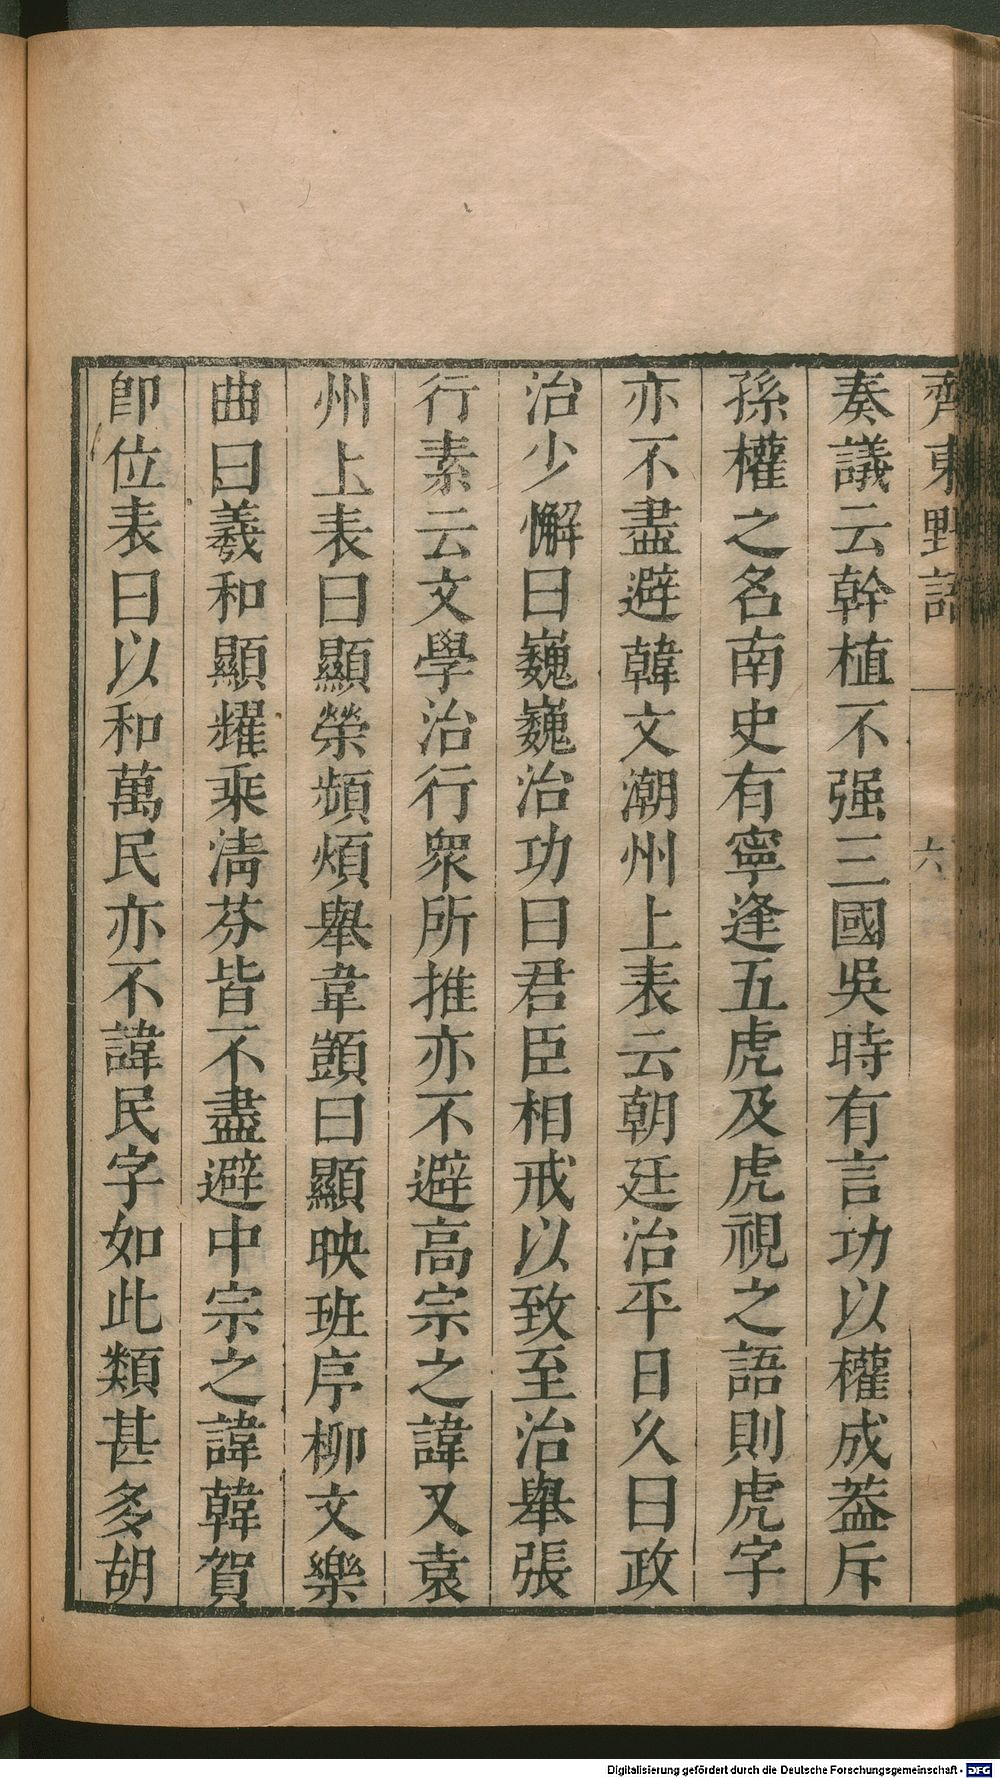 齊東野語 一 六
奏議云幹植不强三國吳時有言功以權成葢斥
孫權之名南史有寧逢五虎及虎視之語則虎字
亦不盡避韓文潮州上表云朝廷治平日久曰政
治少懈曰巍巍治功曰君臣相戒以致至治舉張
行素云文學治行衆所推亦不避高宗之諱又袁
州上表曰顯榮頻煩舉韋顗曰顯映班序柳文樂
曲曰羲和顯耀乘清芬皆不盡避中宗之諱韓賀
卽位表曰以和萬民亦不諱民字如此類甚多胡
Digitalisierung gefördert durch die Deutsche Forschungsgemeinschaft - DFG